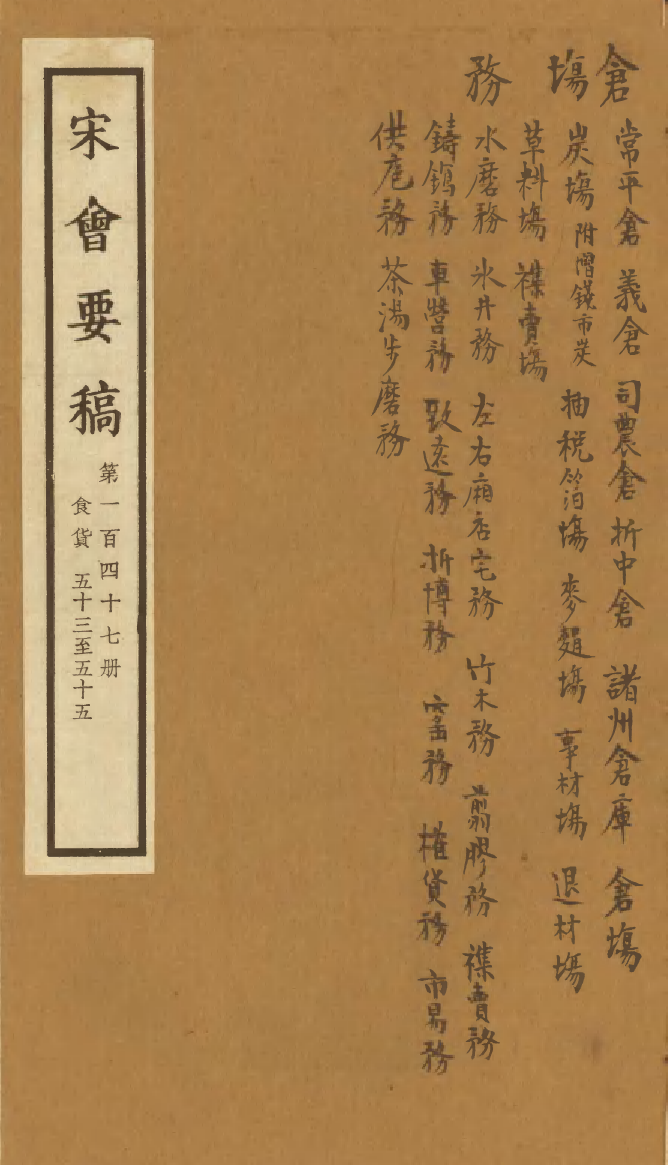 倉 常平倉 義倉 司農倉 折中倉 諸州倉庫 倉塲
塲 炭塲 附 市炭 抽稅箔塲 麥麫塲 事材塲 退材塲
草料塲 襍賣塲
務 水磨務 氷井務 左右廂店宅務 竹木務 煎膠務 襍賣務
鑄鎢務 車營務 致遠務 折博務 窰務 榷貨務 市易務
供庖務 茶湯步磨務
宋會要稿
第一百四十七册
食貨 五十三至五十五